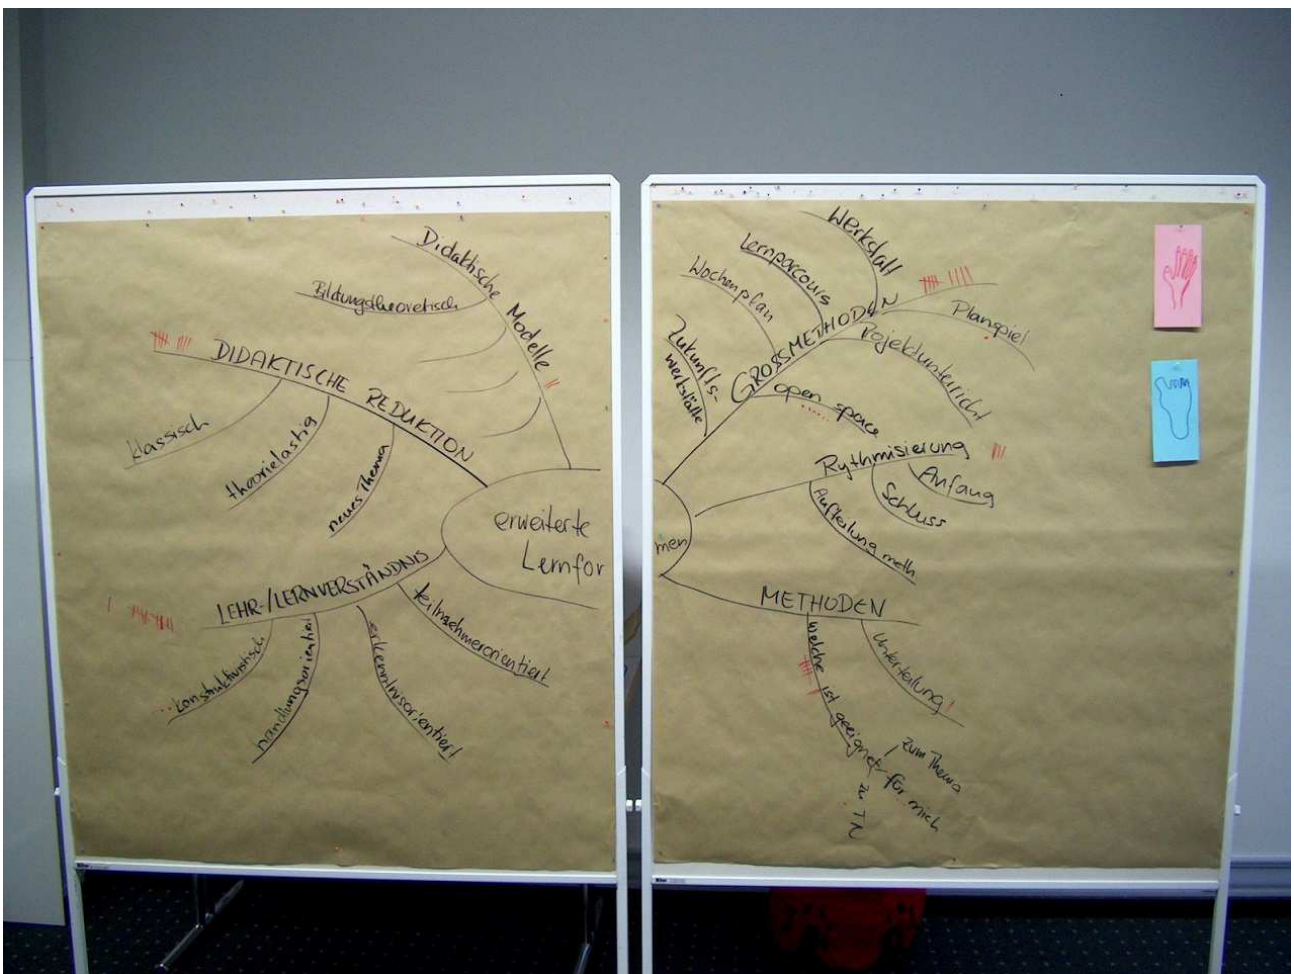 Didaktische Modelle
Bildungstheoretisch
DIDAKTISCHE REDUKTION
klassisch
theorielastig
neues Thema
erweiterte
Lernfor
LEHR-/LERNVERSTÄNDNIS
konstruktivistisch
handlungsorientiert
erkenntnisorientiert
teilnehmerorientiert
Werkstatt
Lernparcours
Wochenplan
Zukunfts-
werkstätte
GROSSMETHODEN
Planspiel
Projektunterricht
open space
Rythmisierung
Anfang
Schluss
Aufteilung meth
men
METHODEN
Unterteilung
welche ist geeignet
zum Thema
für mich
TN